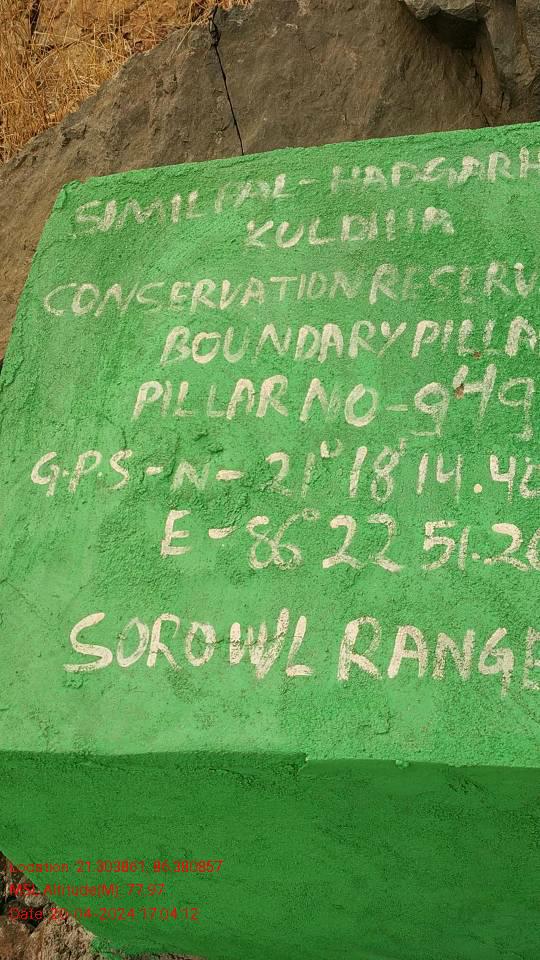 SIMILPAL-HADGARH
KULDIHA
CONSERVATION RESERV
BOUNDARY PILLA
PILLAR NO-949
G.P.S-N-21° 18' 14.40
E-86° 22 51.20
SOROWL RANGE
Location: 21.303861, 86.380857
MSL Altitude(M): 77.97
Date: 20-04-2024 17:04:12